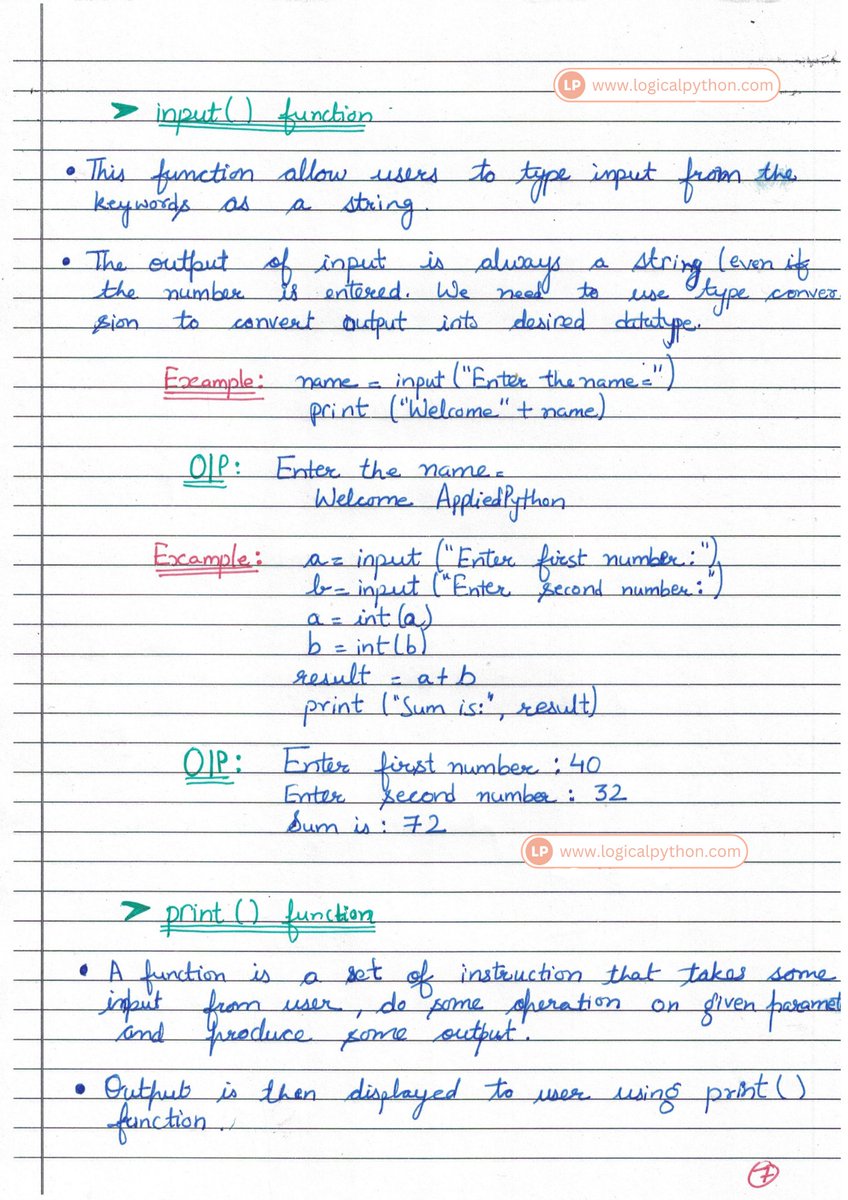 LP www.logicalpython.com
➤ input() function
• This function allow users to type input from the
keywords as a string.
• The output of input is always a string (even if
the number is entered. We need to use type conver
sion to convert output into desired datatype.
Example: name = input ("Enter the name=")
print ("Welcome" + name)
O|P: Enter the name=
Welcome AppliedPython
Example: a = input ("Enter first number:")
b = input ("Enter second number:")
a = int(a)
b = int(b)
result = a+b
print ("Sum is:", result)
O|P: Enter first number : 40
Enter second number : 32
Sum is : 72
LP www.logicalpython.com
➤ print() function
• A function is a set of instruction that takes some
input from user, do some operation on given paramet
and produce some output.
• Output is then displayed to user using print()
function.
7